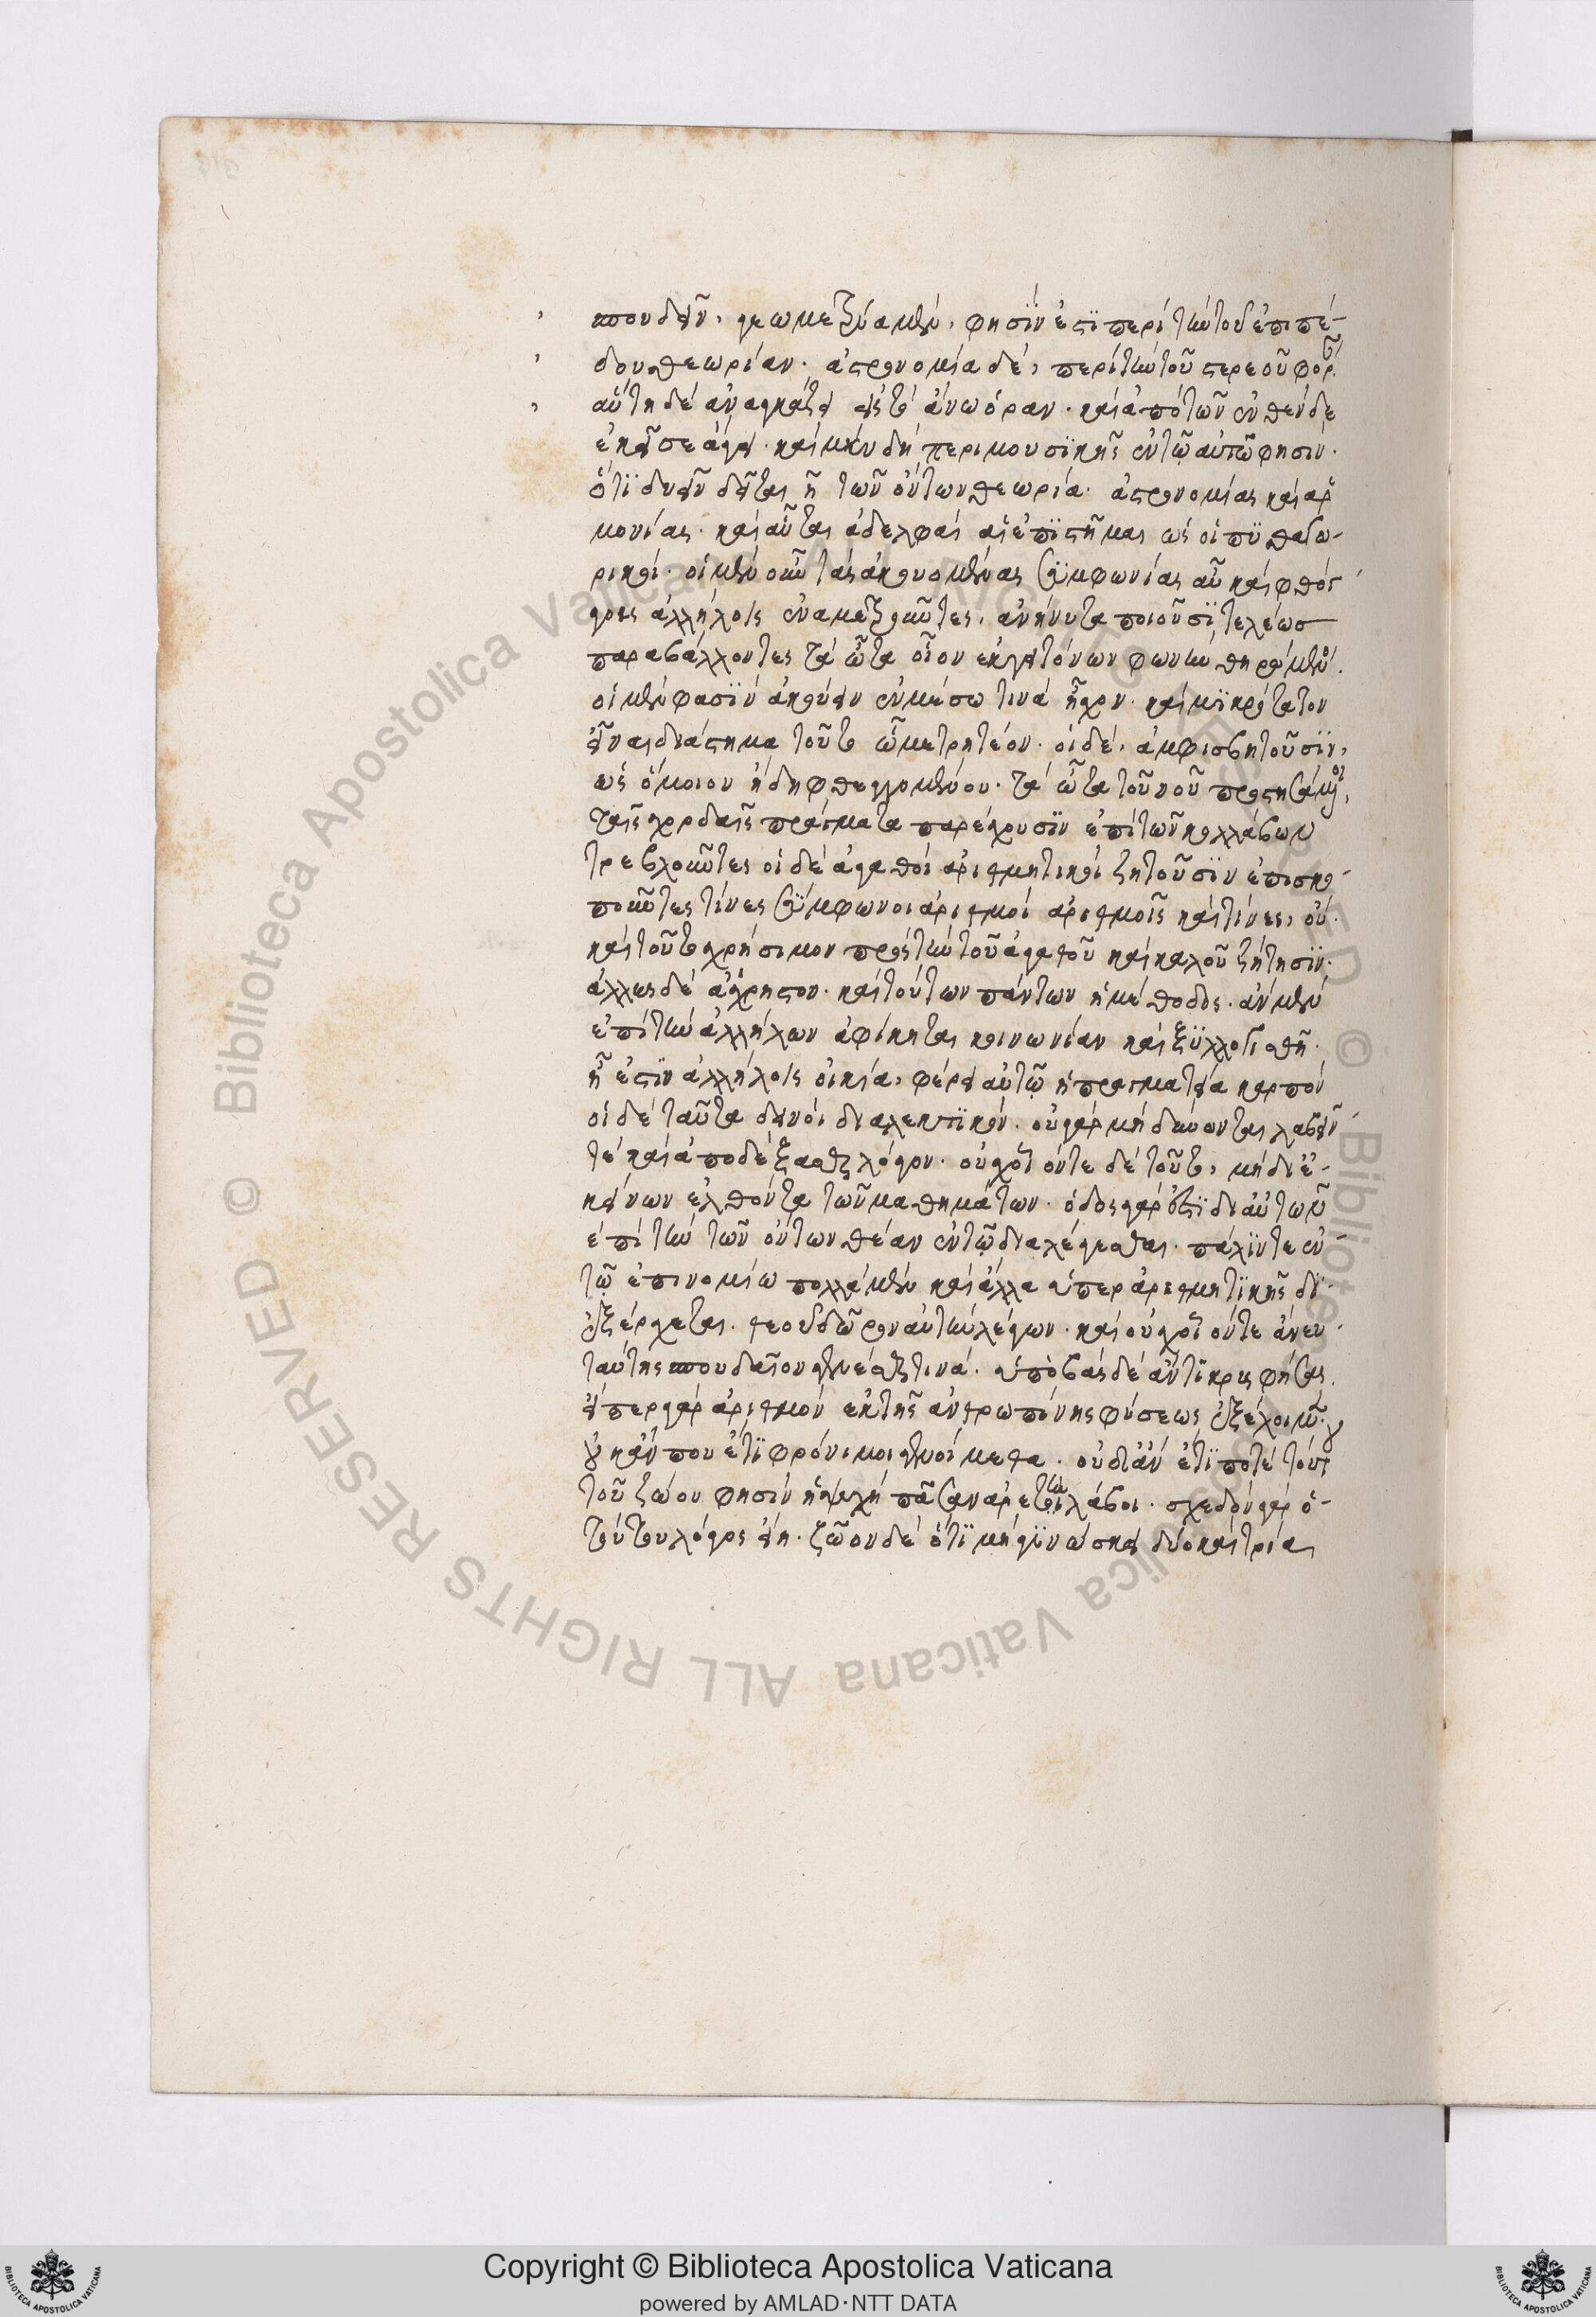 σπουδεῖν, γεωμετρία μὲν, φησὶν ἐστὶ περὶ τὴν τοῦ ἐπιπέ-
δου θεωρίαν. ἀστρονομία δὲ, περὶ τὴν τοῦ στερεοῦ φορὰν
αὕτη δὲ ἀναγκάζει εἰς τὸ ἄνω ὁρᾶν. καὶ ἀπὸ τῶν ἐνθένδε
ἐκεῖσε ἄγει. καὶ μὲν δὴ περὶ μουσικῆς ἐν τῷ αὐτῷ φησιν.
ὅτι δυεῖν δεῖται ἡ τῶν ὄντων θεωρία. ἀστρονομίας καὶ ἁρ
μονίας. καὶ αὗται ἀδελφαὶ αἱ ἐπιστῆμαι ὡς οἱ πυθαγο-
ρικοί. οἱ μὲν οὖν τὰς ἀκουομένας συμφωνίας αὖ καὶ φθόγ
γους ἀλλήλοις ἀναμετροῦντες, ἀνήνυτα ποιοῦσι, τελέως
παραβάλλοντες τὰ ὦτα οἷον ἐκ γειτόνων φωνὴν θηρώμενοι.
οἱ μὲν φασὶν ἀκούειν ἐν μέσω τινὰ ἦχον. καὶ μικρότατον
εἶναι διάστημα τοῦτο ὧ μετρητέον. οἱ δὲ, ἀμφισβητοῦσιν,
ὡς ὅμοιον ἤδη φθεγγομένου. τὰ ὦτα τοῦ νοῦ προστησάμενοι,
ταῖς χορδαῖς πράγματα παρέχουσιν ἐπὶ τῶν κολλάβων
στρεβλοῦντες οἱ δὲ ἀγαθοὶ ἀριθμητικοὶ ζητοῦσιν ἐπισκο-
ποῦντες τίνες σύμφωνοι ἀριθμοὶ ἀριθμοῖς καὶ τίνες, οὔ.
καὶ τοῦτο χρήσιμον πρὸς τὴν τοῦ ἀγαθοῦ καὶ καλοῦ ζήτησιν.
ἄλλως δὲ ἄχρηστον. καὶ τούτων πάντων ἡ μέθοδος. ἂν μὲν
ἐπὶ τὴν ἀλλήλων ἀφίκηται κοινωνίαν καὶ ξυλλογισθῇ.
ᾗ ἐστὶν ἀλλήλοις οἰκεῖα, φέρει αὐτῷ ἡ πραγματεία καρπόν
οἱ δὲ ταῦτα δεινοὶ διαλεκτικοί. οὐ γὰρ μὴ δύνωνται λαβεῖν
τὲ καὶ ἀποδέξασθαι λόγον. οὐχ οἷόν τε δὲ τοῦτο, μὴ δι' ἐ-
κείνων ἐλθόντα τῶν μαθημάτων. ὁδὸς γὰρ ἐστὶ δι' αὐτῶν
ἐπὶ τὴν τῶν ὄντων θέαν ἐν τῷ διαλέγεσθαι. πάλιν τε ἐν
τῷ ἐπινομίω πολλὰ μὲν καὶ ἄλλα ὑπὲρ ἀριθμητικῆς δι-
εξέρχεται. θεοῦ δῶρον αὐτὴν λέγων. καὶ οὐχ οἷόν τε ἄνευ
ταύτης σπουδαῖον γενέσθαι τινά. ὑποβὰς δὲ ἄντικρυς φησὶ,
εἴπερ γὰρ ἀριθμὸν ἐκ τῆς ἀνθρωπίνης φύσεως ἐξέλοιμεν,
οὐκ ἄν που ἔτι φρόνιμοι γενοίμεθα. οὐδ' ἂν ἔτι ποτὲ τούτου
τοῦ ζώου φησὶν ἡ ψυχὴ πᾶσαν ἀρετὴν λάβοι. σχεδὸν γὰρ ὁ-
τούτου λόγος εἴη. ζῶον δὲ ὅτι μὴ γινώσκει δύο καὶ τρία